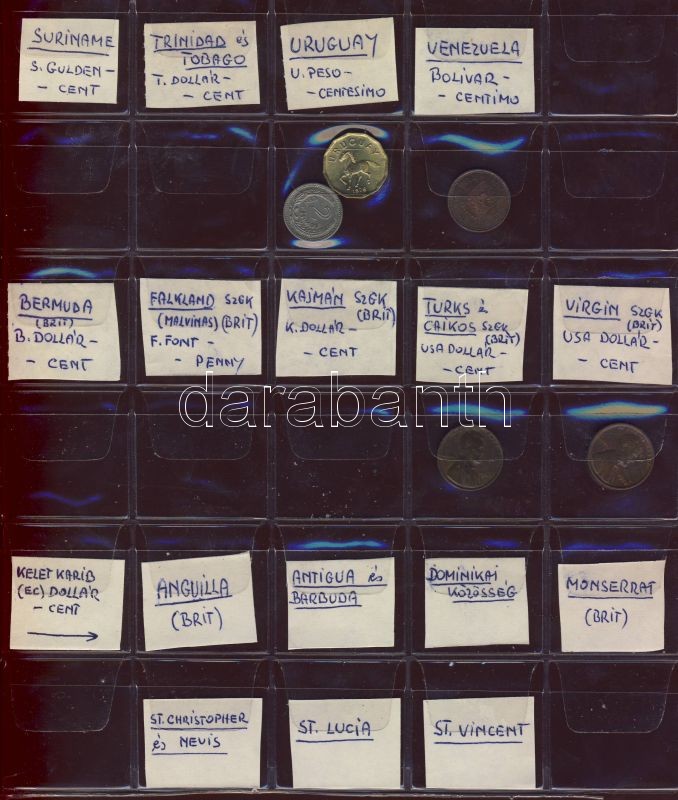 SURINAME
S. GULDEN -
- CENT
TRINIDAD és
TOBAGO
T. DOLLÁR -
- CENT
URUGUAY
U. PESO -
- CENTESIMO
VENEZUELA
BOLÍVAR -
- CENTIMO
URUGUAY
2
BERMUDA
(BRIT)
B. DOLLÁR -
- CENT
FALKLAND SZGK
(MALVINAS) (BRIT)
F. FONT -
- PENNY
KAJMÁN SZGK
(BRIT)
K. DOLLÁR -
- CENT
TURKS és
CAIKOS SZGK
(BRIT)
USA DOLLÁR -
- CENT
VIRGIN SZGK
(BRIT)
USA DOLLÁR -
- CENT
darabanth
KELET KARIB
(EC) DOLLÁR
- CENT
ANGUILLA
(BRIT)
ANTIGUA és
BARBUDA
DOMINIKAI
KÖZÖSSÉG
MONSERRAT
(BRIT)
ST. CHRISTOPHER
és NEVIS
ST. LUCIA
ST. VINCENT